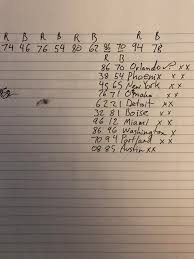 R B R B R B R B R B
74 46 76 54 80 62 86 70 94 78
R B
86 70 Orlando ✓ x
38 54 Phoenix x x
45 65 New York x x
76 71 Omaha x x
62 21 Detroit x x
32 81 Boise x x
96 12 Miami x x
86 96 Washington x
70 94 Portland x x
08 85 Austin x x